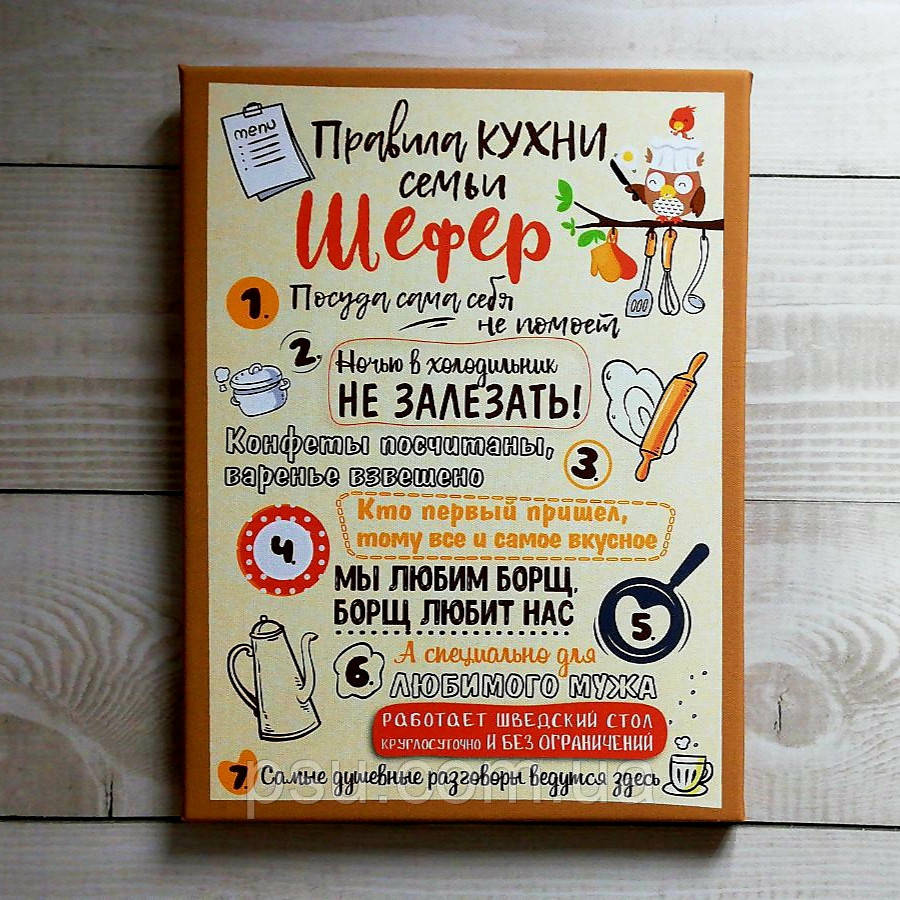 menu
Правила КУХНИ
семьи
Шефер
1. Посуда сама себя
не помоет
2. Ночью в холодильник
НЕ ЗАЛЕЗАТЬ!
Конфеты посчитаны,
варенье взвешено
3.
Кто первый пришел,
тому все и самое вкусное
4.
МЫ ЛЮБИМ БОРЩ,
БОРЩ ЛЮБИТ НАС
5.
6. А специально для
ЛЮБИМОГО МУЖА
РАБОТАЕТ ШВЕДСКИЙ СТОЛ
КРУГЛОСУТОЧНО И БЕЗ ОГРАНИЧЕНИЙ
7. Самые душевные разговоры ведутся здесь
psu.com.ua